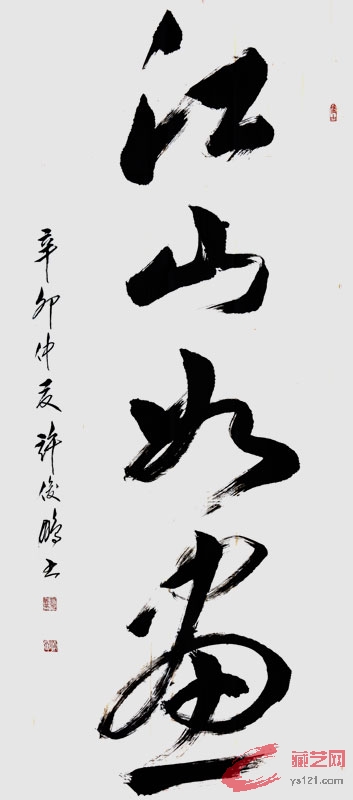 江山如画
辛卯仲夏许俊鹏书
藏艺网
ys121.com